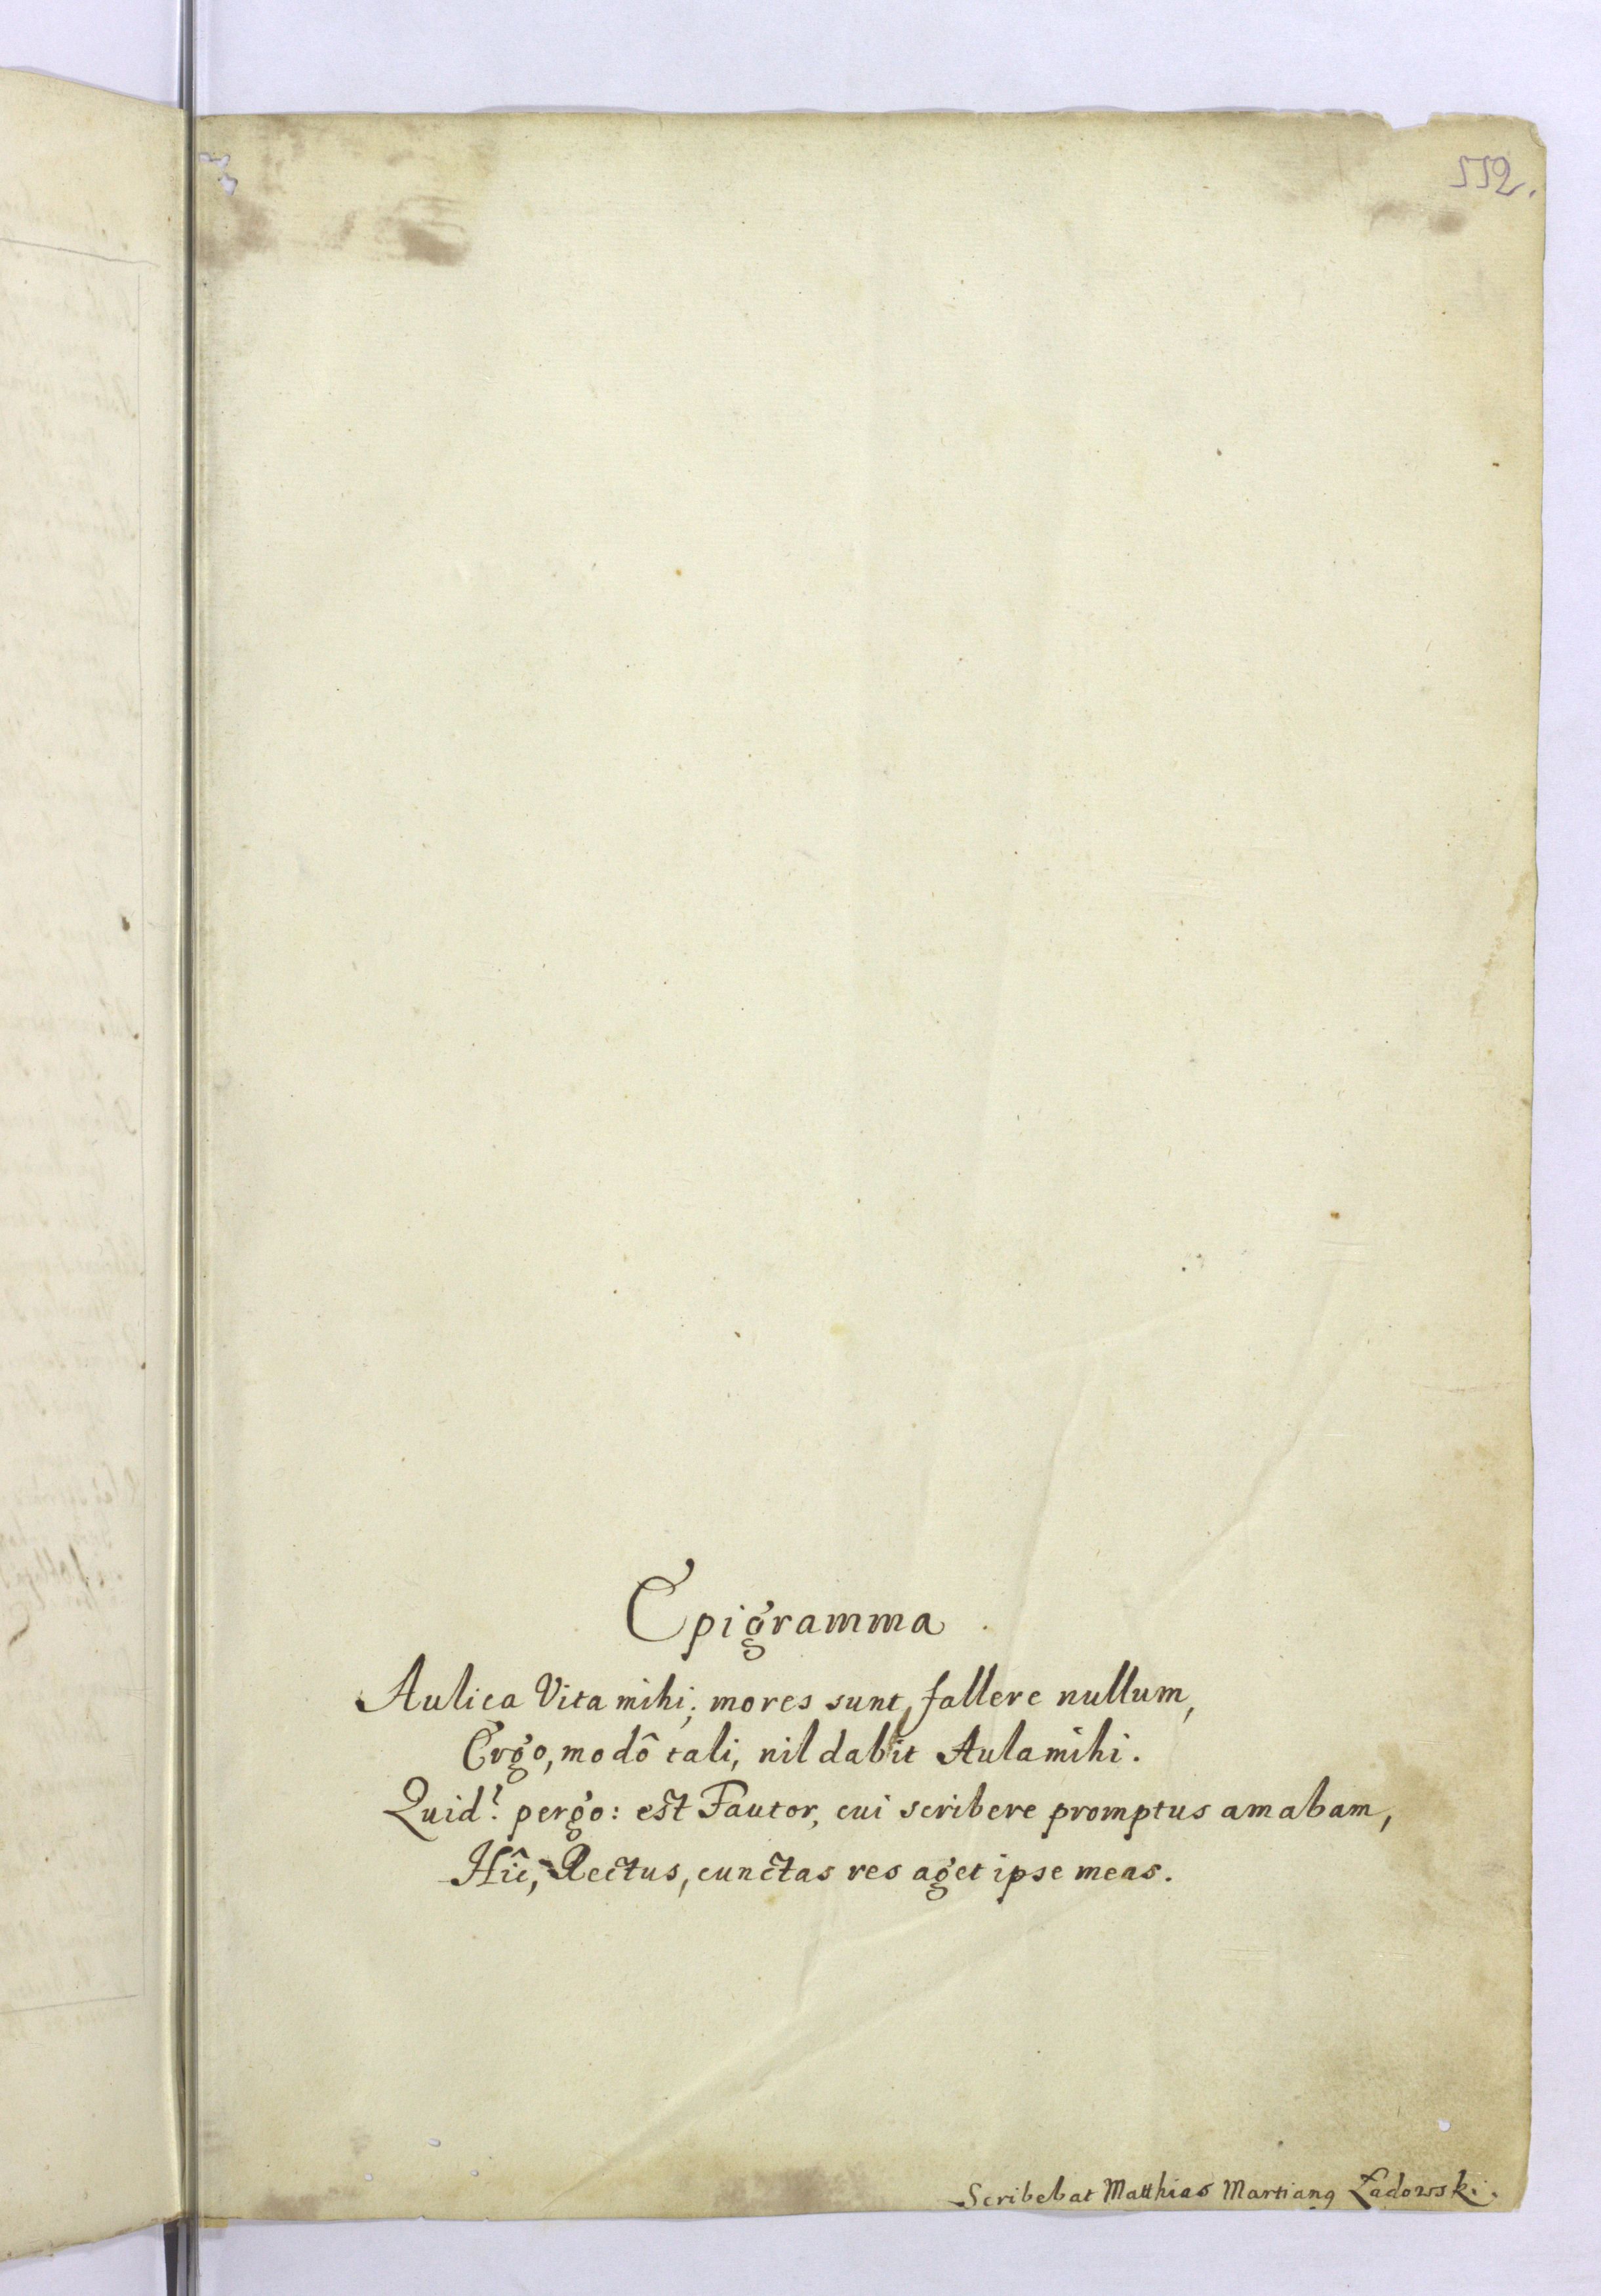 552.
Epigramma
Aulica Vita mihi; mores sunt, fallere nullum,
Ergo, modô tali, nil dabit Aula mihi.
Quid? pergo: est Fautor, cui scribere promptus amabam,
Hîc, Rectus, cunctas res aget ipse meas.
Scribebat Matthias Martianꝯ Ładowski.